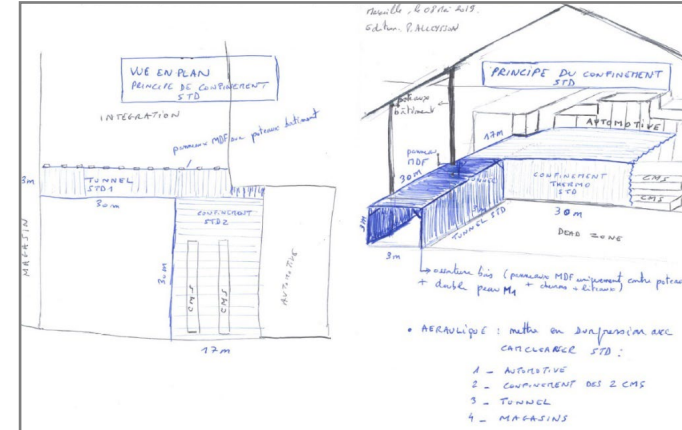 VUE EN PLAN
PRINCIPE DE CONFINEMENT
STD
INTEGRATION
panneaux MDF sur poteaux bâtiment
3m
TUNNEL
STD1
30m
MAGASIN
CONFINEMENT
STD2
30m
CMS
CMS
AUTOMOTIVE
17m
Marseille, le 08 Mai 2019.
Edition. P. ALLOISSON
PRINCIPE DU CONFINEMENT
STD
poteaux
bâtiment
AUTOMOTIVE
17m
panneaux
MDF
30m
TUNNEL
CONFINEMENT
THERMO
STD
CMS
CMS
3m
3m
TUNNEL STD
30m
DEAD ZONE
ossature bois (panneaux MDF uniquement contre poteaux
+ double peau M1
• AERAULIQUE : mettre en surpression avec
CAMCLEANER STD :
1 - AUTOMOTIVE
2 - CONFINEMENT DES 2 CMS
3 - TUNNEL
4 - MAGASINS